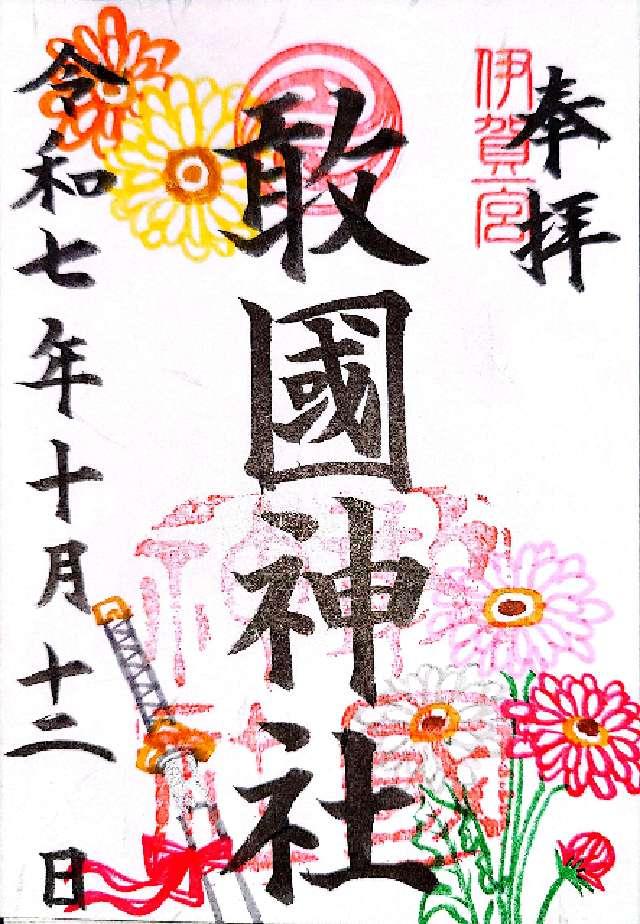 奉拝
伊賀一宮
敢國神社
令和七年十月十二日